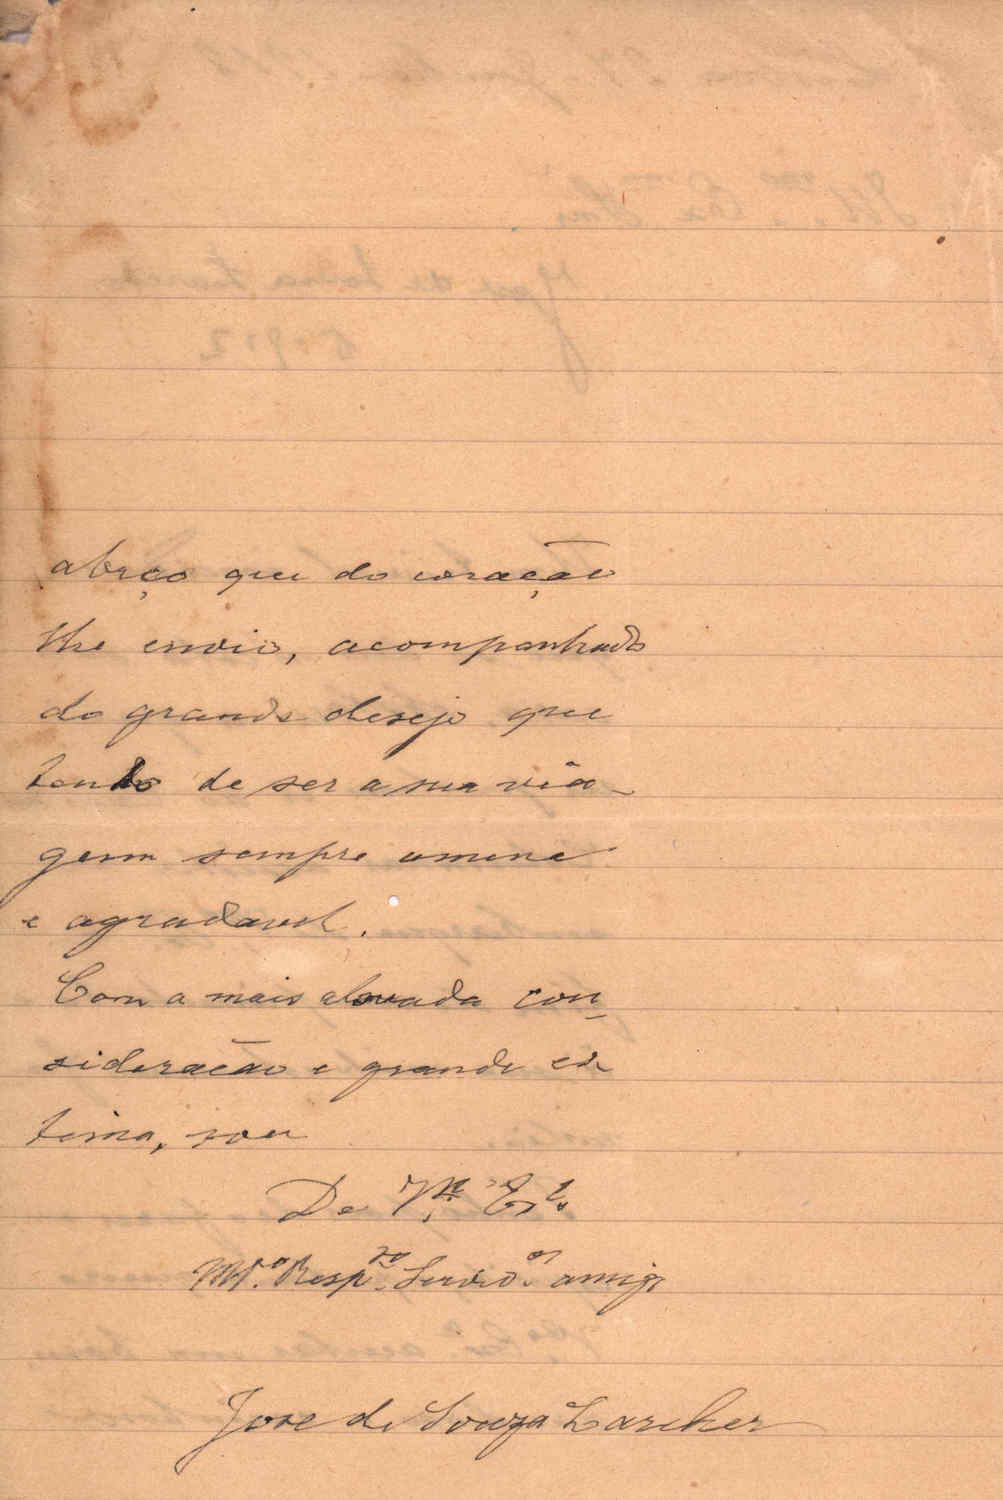 abrço que do coração
lhe envio, acompanhado
do grande desejo que
tenho de ser a sua via-
gem sempre amena
e agradavel.
Com a mais elevada con-
sideração e grande es
tima, sou
De V.ª Ex.ª
Mt.º Resp.do Servo.or amigo
Jose de Souza Larcher